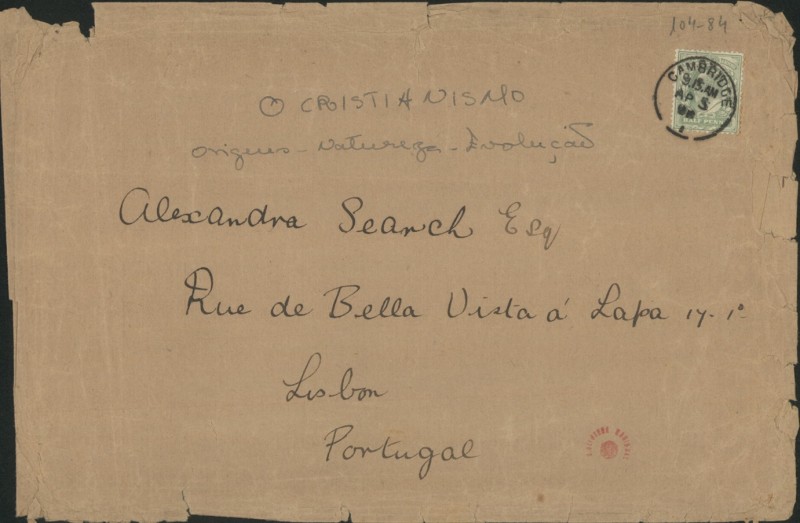 104-84
CAMBRIDGE
9.15 AM
AP 3
1
HALF PENNY
O CRISTIANISMO
origens - natureza - Evolução
Alexandra Search Esq
Rue de Bella Vista á Lapa 17-1º
Lisbon
Portugal